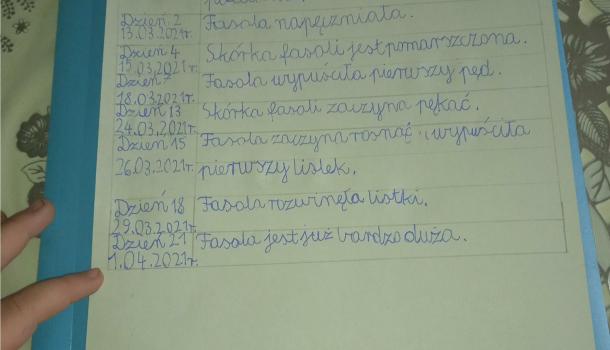 Dzień 2 Fasola napęczniała.
13.03.2021r.
Dzień 4 Skórka fasoli jest pomarszczona.
15.03.2021r.
Dzień 7 Fasola wypuściła pierwszy pęd.
18.03.2021r.
Dzień 13 Skórka fasoli zaczyna pękać.
24.03.2021r.
Dzień 15 Fasola zaczyna rosnąć i wypuściła
26.03.2021r. pierwszy listek.
Dzień 18 Fasola rozwinęła listki.
29.03.2021r.
Dzień 21 Fasola jest już bardzo duża.
1.04.2021r.